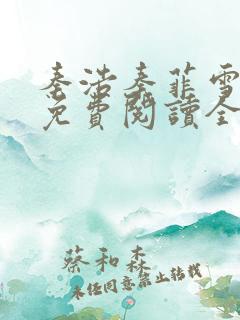 秦浩秦菲雪
免費閱讀全
蔡和森
未經同意禁止轉載